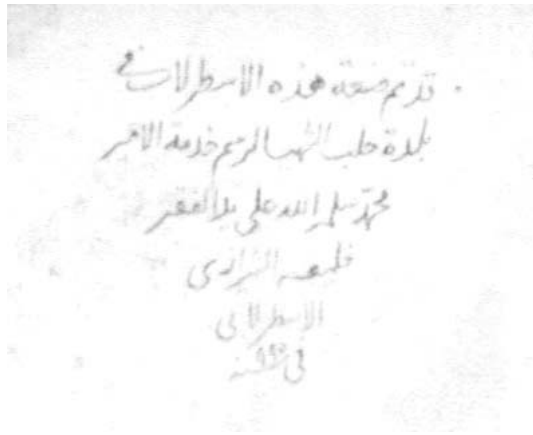 قد تم صنعة هذه الاسطرلاب في
بلدة حلب الشهبا لرسم خدمة الامير
محمد سلمه الله على يد الفقير
الشيرازي
الاسطرلابي
في سنة